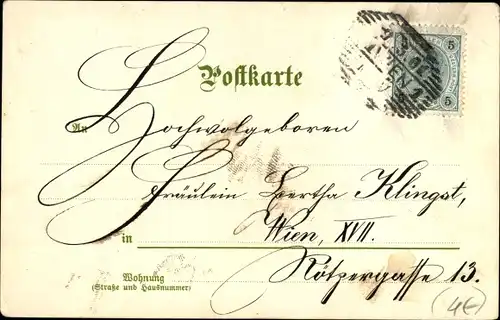 5
Postkarte
5 5
An Hochwolgeboren
Fräulein Bertha Klingst,
in Wien, XVII.
Wohnung
(Straße und Hausnummer)
Rötzergasse 13.
4€